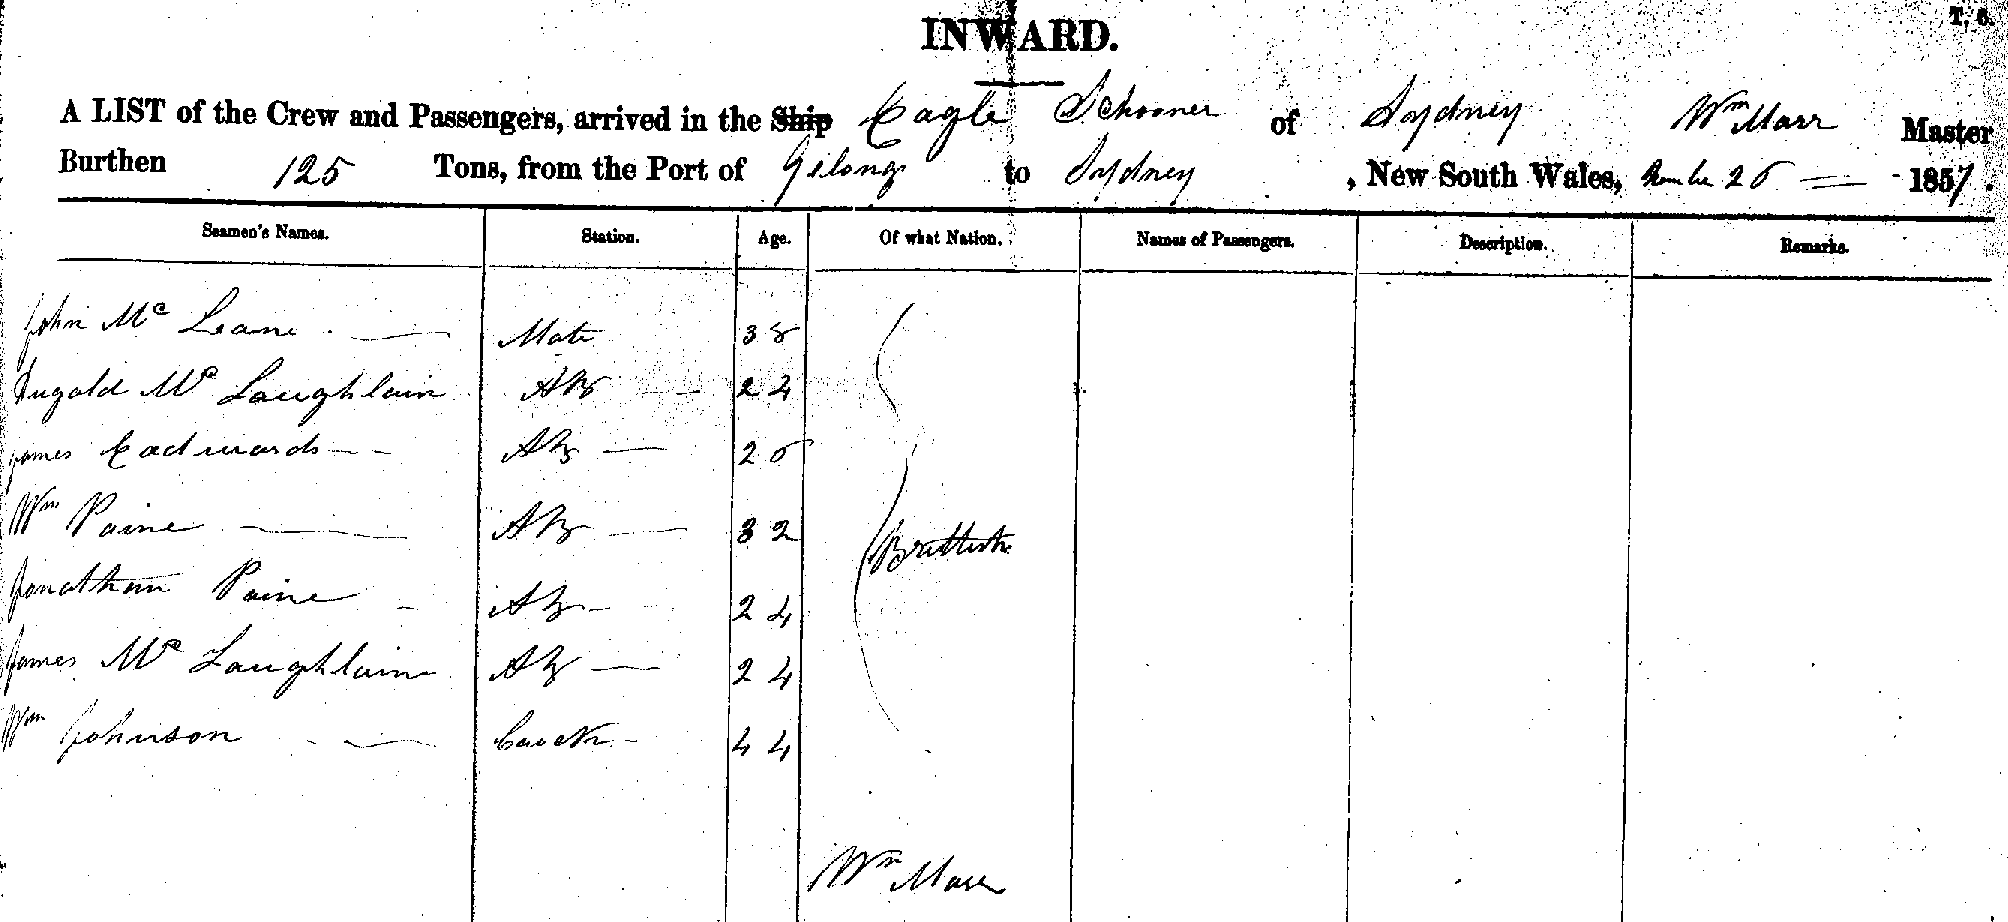 T, 6.
INWARD.
A LIST of the Crew and Passengers, arrived in the Ship Eagle Schooner of Sydney Wm Marr Master
Burthen 125 Tons, from the Port of Gelong to Sydney, New South Wales, 1857.
Seamen's Names. Station. Age. Of what Nation. Names of Passengers. Description. Remarks.
John Mc Leane Mate 38
Dugald Mc Laughlain AB 24
James Eadwards AB
Wm Paine AB 32
Brittish
Jonathan Paine AB 24
James Mc Laughlain AB 24
Wm Johnson Coock 44
Wm Marr